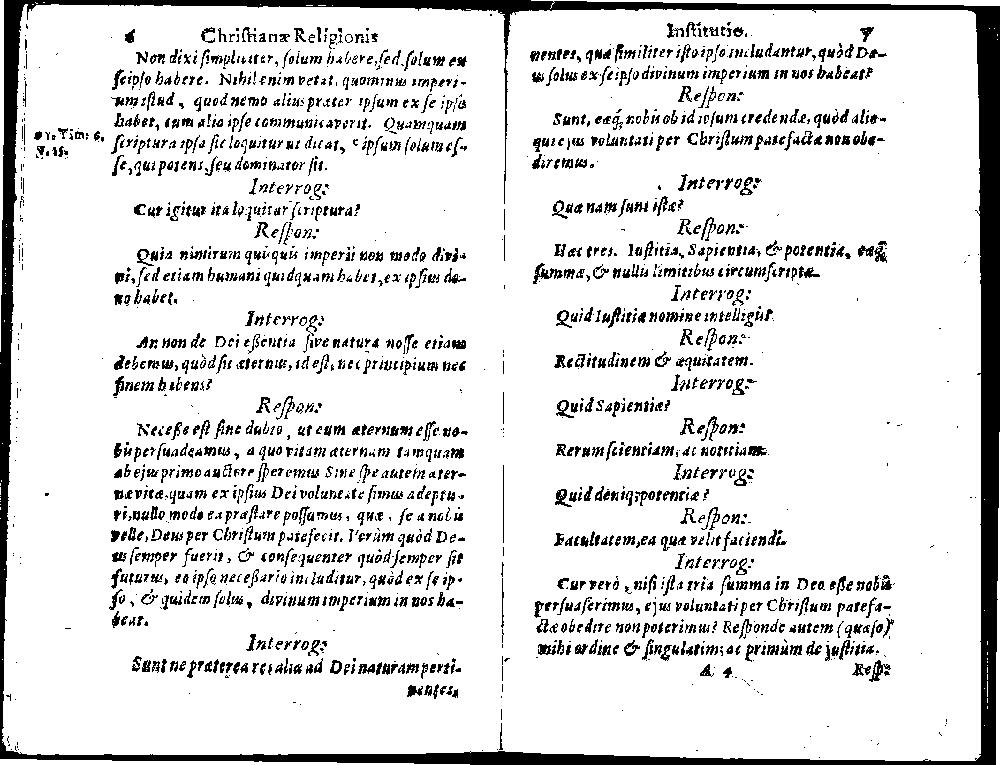 6 Christianæ Religionis
Non dixi simpliciter, solum habere, sed, solum ex
seipso habere. Nihil enim vetat, quominus imperi-
um istud, quod nemo alius præter ipsum ex se ipso
habet, cum alio ipse communicaverit. Quamquam
1. Tim: 6.
scriptura ipsa sic loquitur ut dicat, c ipsum solum es-
v. 15.
se, qui potens, seu dominator sit.
Interrog:
Cur igitur ita loquitur scriptura?
Respon:
Quia nimirum quisquis imperii non modo divi-
ni, sed etiam humani quidquam habet, ex ipsius do-
no habet.
Interrog:
An non de Dei essentia sive natura nosse etiam
debemus, quòd sit æternus, id est, nec principium nec
finem habens?
Respon:
Necesse est sine dubio, ut eum æternum esse no-
bis persuadeamus, a quo vitam æternam tamquam
ab ejus primo auctore speremus Sine spe autem æter-
næ vitæ, quam ex ipsius Dei voluntate simus adeptu-
ri, nullo modo ea præstare possumus, quæ, se a nobis
velle, Deus per Christum patefecit. Verùm quòd De-
us semper fuerit, & consequenter quòd semper sit
futurus, eo ipso necessario includitur, quòd ex se ip-
so, & quidem solus, divinum imperium in nos ha-
beat.
Interrog:
Sunt ne præterea res aliæ ad Dei naturam perti-
nentes,
Institutio. 7
nentes, quæ similiter isto ipso includantur, quòd De-
us solus ex seipso divinum imperium in nos habeat?
Respon:
Sunt, eæq; nobis ob id ipsum credendæ, quòd alio-
qui ejus voluntati per Christum patefactæ non obe-
diremus.
Interrog:
Quæ nam sunt istæ?
Respon:
Hæc tres. Iustitia, Sapientia, & potentia, eæq;
summæ, & nullis limitibus circumscriptæ.
Interrog:
Quid Iustitiæ nomine intelligis?
Respon:
Rectitudinem & æquitatem.
Interrog:
Quid Sapientiæ?
Respon:
Rerum scientiam, ac notitiam.
Interrog:
Quid deniq; potentiæ?
Respon:
Facultatem, ea quæ velit faciendi.
Interrog:
Cur verò, nisi ista tria summa in Deo esse nobis
persuaserimus, ejus voluntati per Christum patefa-
ctæ obedire non poterimus? Responde autem (quæso)
mihi ordine & singulatim; ac primùm de justitia.
A 4 Resp: